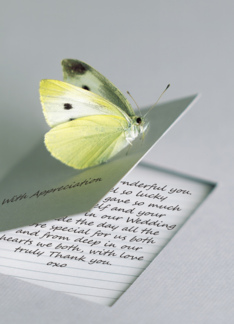 With Appreciation
nderful you
d so lucky
gave so much
lf and your
in our Wedding
e the day all the
re special for us both
and from deep in our
hearts we both, with love
truly Thank you
oxo